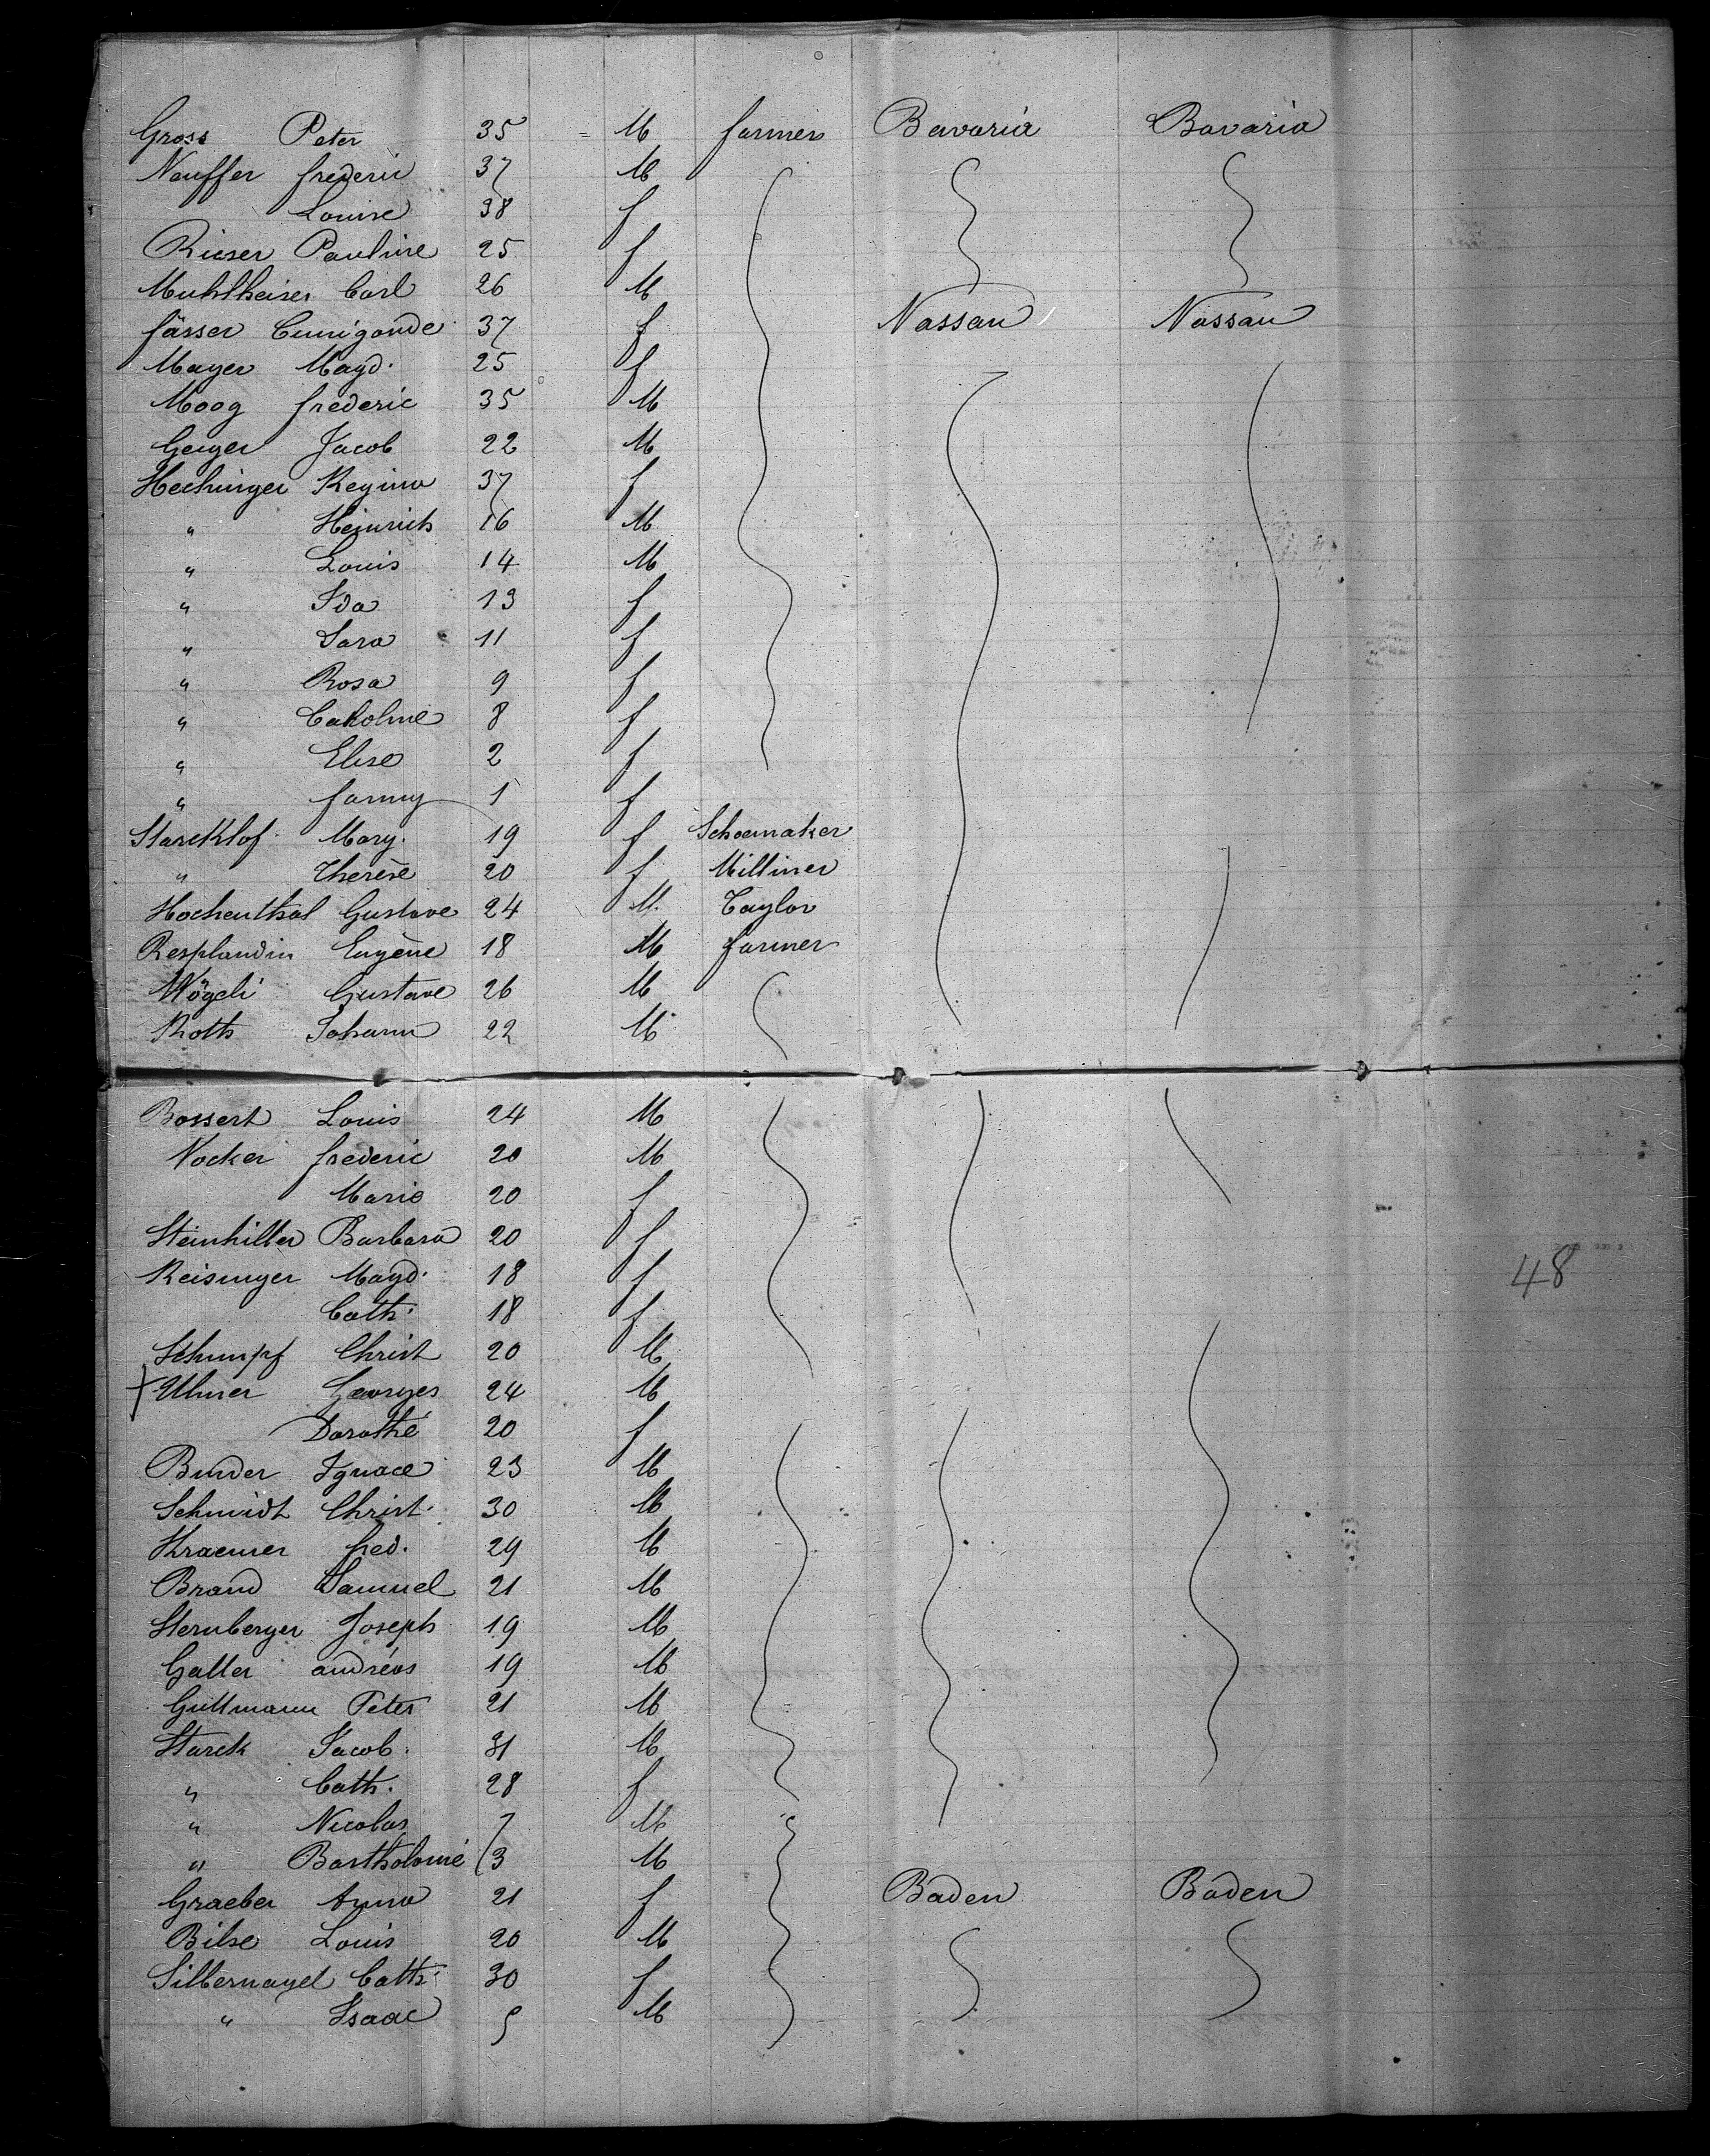 Gross Peter 35 = M farmer Bavaria Bavaria
Nauffer frederic 37 M
Louise 38 f
Rieser Pauline 25 f
Muhlheiser Carl 26 M
fässer Cunigonde 37 f Nassau Nassau
Mayer Magd. 25 f
Moog frederic 35 M
Geiger Jacob 22 M
Hechinger Regina 37 f
" Heinrich 16 M
" Louis 14 M
" Ida 13 f
" Sara 11 f
" Rosa 9 f
" Caholine 8 f
" Elise 2 f
" fanny 1 f
Starcklof Mary. 19 f Schoemaker
" Therèse 20 f Milliner
Hochenthal Gustave 24 M. Taylor
Resplandin Eugène 18 M farmer
Wögeli Gustave 26 M
Roth Johann 22 M
Bossert Louis 24 M
Nocker frederic 20 M
Marie 20 f
Steinhilber Barbara 20 f
Reisinger Magd. 18 f
Cath. 18 f
Schimpf Christ 20 M
Ulmer Georges 24 M
Dorothé 20 f
Binder Ignace 23 M
Schmidt Christ. 30 M
Kraemer fred. 29 M
Brand Samuel 21 M
Sternberger Joseph 19 M
Galler andréas 19 M
Gullmann Peter 21 M
Starck Jacob. 31 M
" Cath. 28 f
" Nicolas 7 M
" Bartholomé 3 M
Graeber Anna 21 f Baden Baden
Bilse Louis 20 M
Silbernagel Cath. 30 f
" Isaac 5 M
48